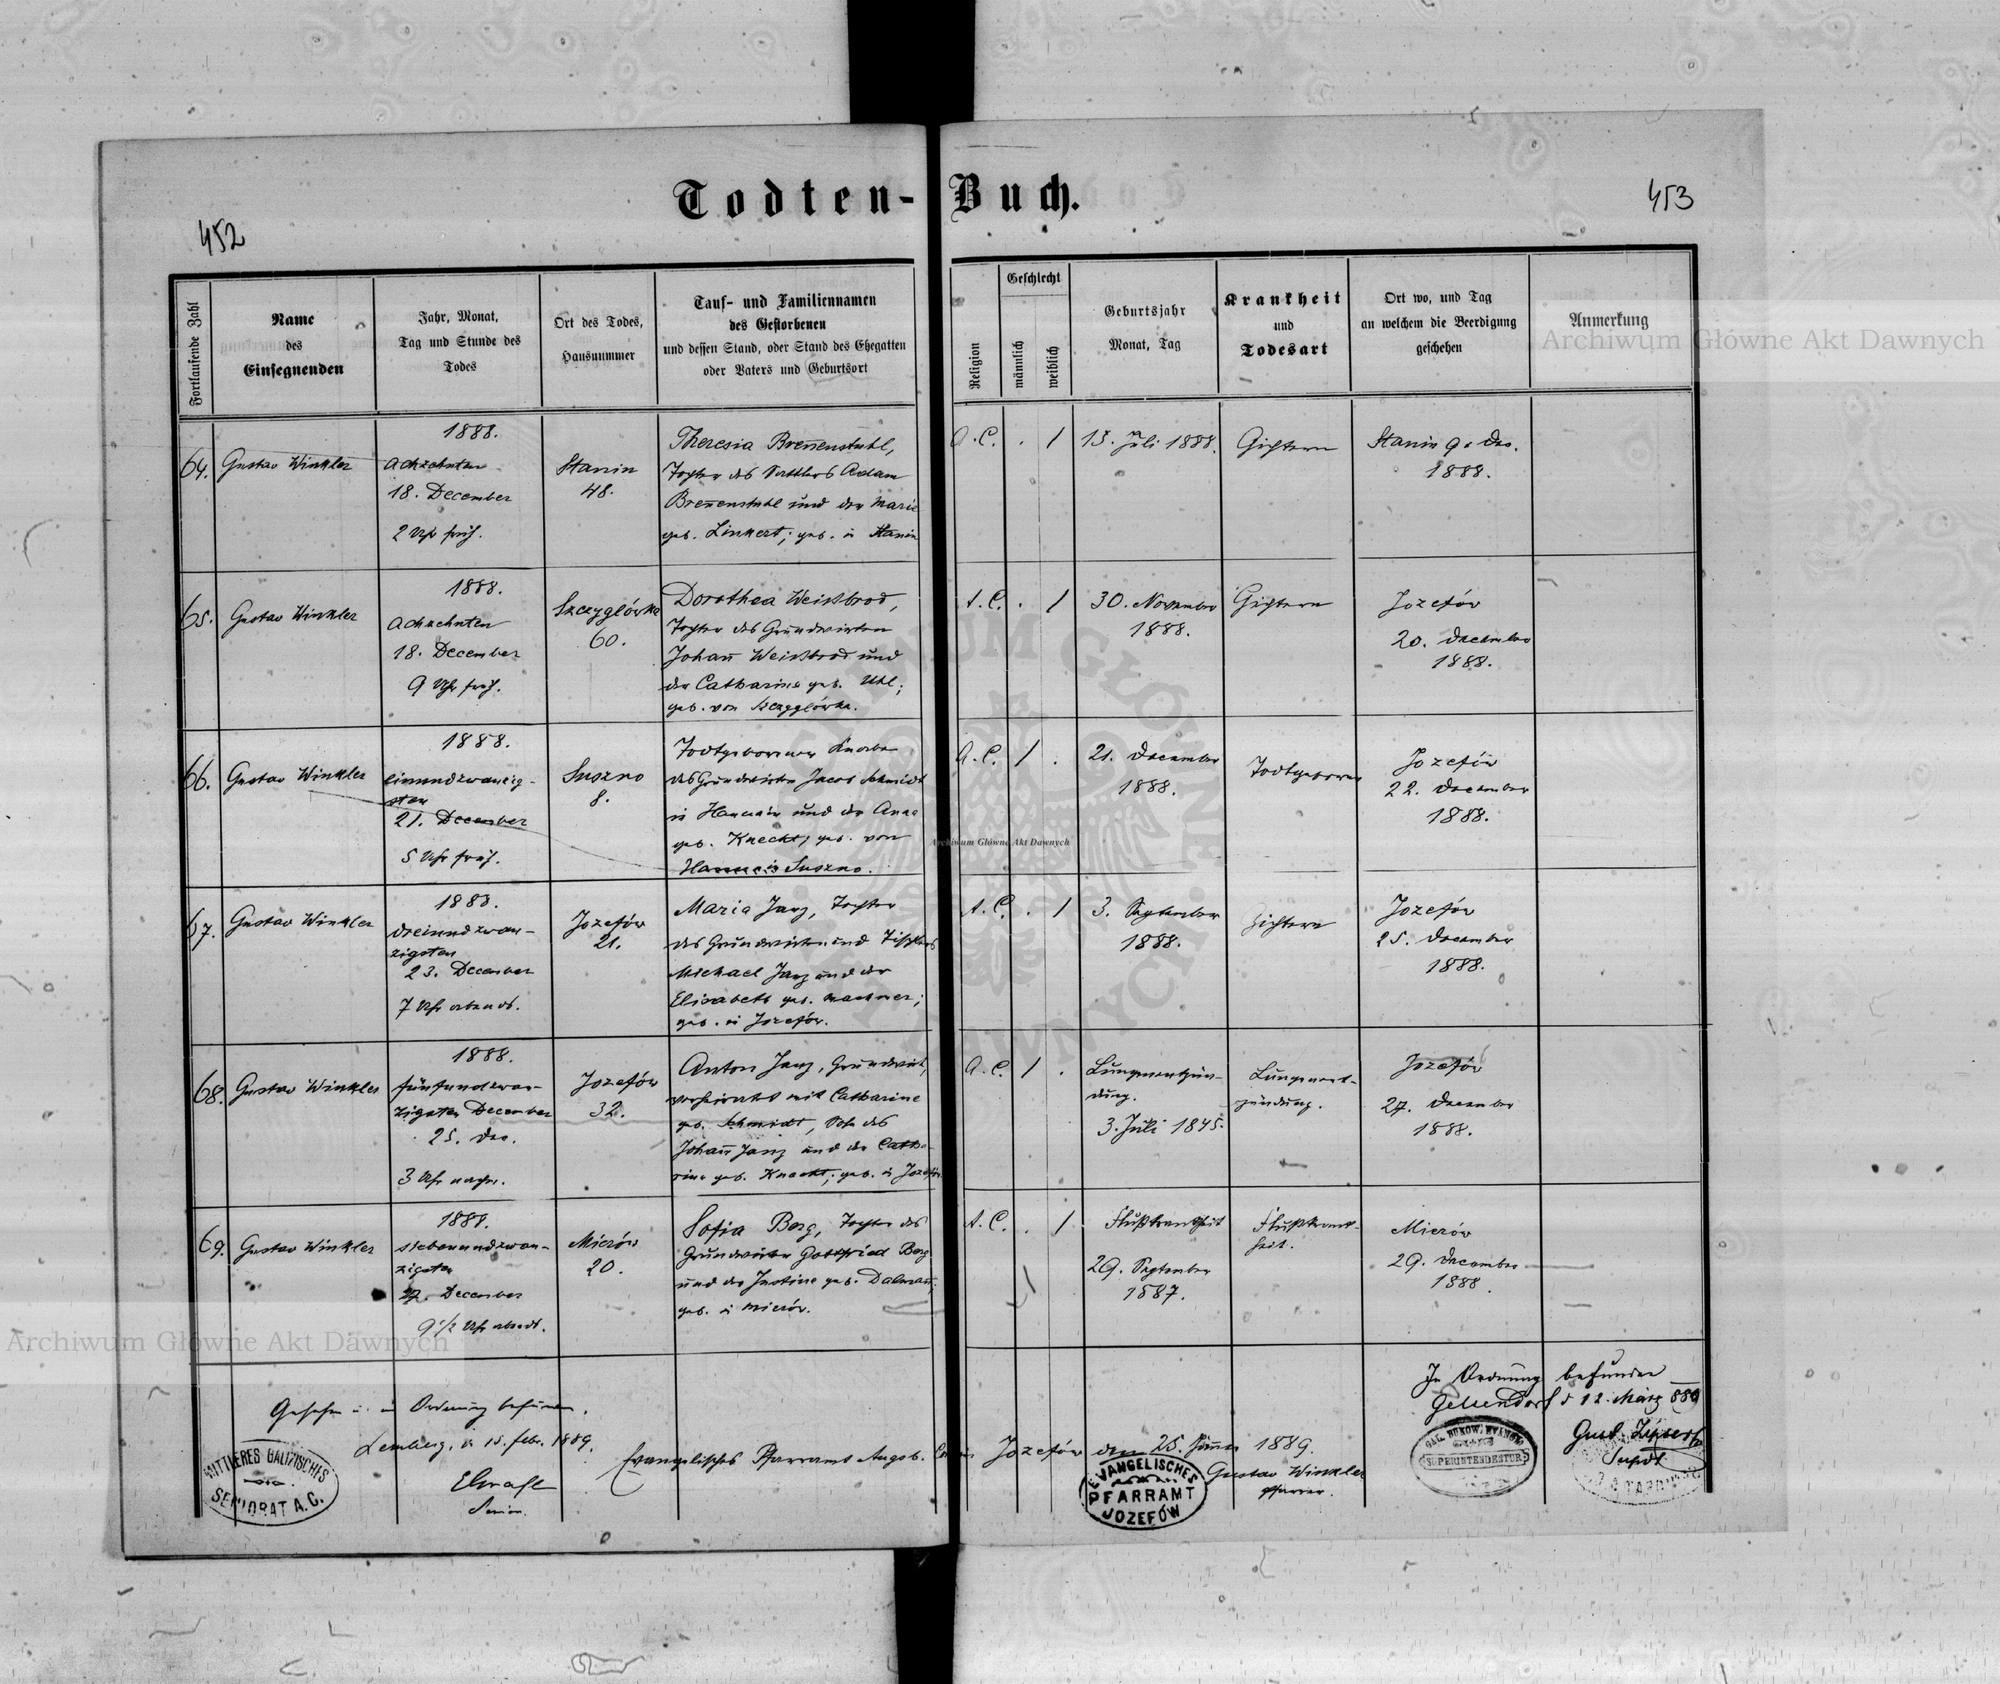 Todten-Buch.
452
453
Fortlaufende Zahl
Name
des
Einsegnenden
Jahr, Monat,
Tag und Stunde des
Todes
Ort des Todes,
Hausnummer
Tauf- und Familiennamen
des Gestorbenen
und dessen Stand, oder Stand des Ehegatten
oder Vaters und Geburtsort
Religion
Geschlecht
männlich
weiblich
Geburtsjahr
Monat, Tag
Krankheit
und
Todesart
Ort wo, und Tag
an welchem die Beerdigung
geschehen
Anmerkung
64.
Gustav Winkler
1888.
achzehnten
18. December
2 Uhr früh.
Stanin
48.
Theresia Breñenstuhl,
Tochter des Sattlers Adam
Breñenstuhl und der Marie
geb. Linkert; geb. in Stanin
A.C.
.
1
13. Juli 1888.
Gichtern
Stanin Dec.
1888.
65.
Gustav Winkler
1888.
achzehnten
18. December
9 Uhr früh.
Szczygłówka
60.
Dorothea Weißbrod,
Tochter des Grundwirten
Johañ Weißbrod und
der Catharina geb. Uhl;
geb. von Szczygłówka.
A.C.
.
1
30. November
1888.
Gichtern
Jozefów
20. December
1888.
66.
Gustav Winkler
1888.
einundzwanzig-
sten
21. December
5 Uhr früh.
Suszno
8.
Todtgeborener Knabe
des Grundwirten Jacob Schmidt
in Hanunin und der Anna
geb. Knecht; geb. von
Suszno.
A.C.
1
.
21. December
1888.
Todtgeboren
Jozefów
22. December
1888.
67.
Gustav Winkler
1888.
dreiundzwan-
zigsten
23. December
7 Uhr abends.
Jozefów
21.
Maria Janz, Tochter
des Grundwirten und Tischlers
Michael Janz und der
Elisabeth geb. Machner;
geb. in Jozefów.
A.C.
.
1
3. September
1888.
Gichtern
Jozefów
25. December
1888.
68.
Gustav Winkler
1888.
fünfundzwan-
zigsten December
25. Dec.
3 Uhr nachm.
Jozefów
32.
Anton Janz, Grundwirt,
verheiratet mit Catharine
geb. Schmidt, Sohn des
Johañ Janz und der Catha-
rine geb. Knecht; geb. in Jozefów
A.C.
1
.
Lungenentzün-
dung.
3. Juli 1845.
Lungenent-
zündung.
Jozefów
27. December
1888.
69.
Gustav Winkler
1888.
siebenundzwan-
zigsten
27. December
9 1/2 Uhr abends.
Mierów
20.
Sofia Berg, Tochter des
Grundwirten Gottfried Berg
und der Justine geb. Dalmañ;
geb. in Mierów.
A.C.
.
1
Flußkrankheit
29. September
1887.
Flußkrank-
heit.
Mierów
29. December
1888.
Gesehen u. in Ordnung befunden.
Lemberg, 15. Febr. 1889.
Senior.
MITTLERES GALIZISCHES
SENIORAT A.C.
Evangelisches Pfarramt Augsb. Conf. in Jozefów den 25. Jänner 1889.
Gustav Winkler
Pfarrer.
EVANGELISCHES
PFARRAMT
JOZEFÓW
In Ordnung befunden
Gelsendorf 12. März 889
SUPERINTENDENTUR
Archiwum Główne Akt Dawnych
Archiwum Główne Akt Dawnych
Archiwum Główne Akt Dawnych
ARCHIWUM GŁÓWNE AKT DAWNYCH